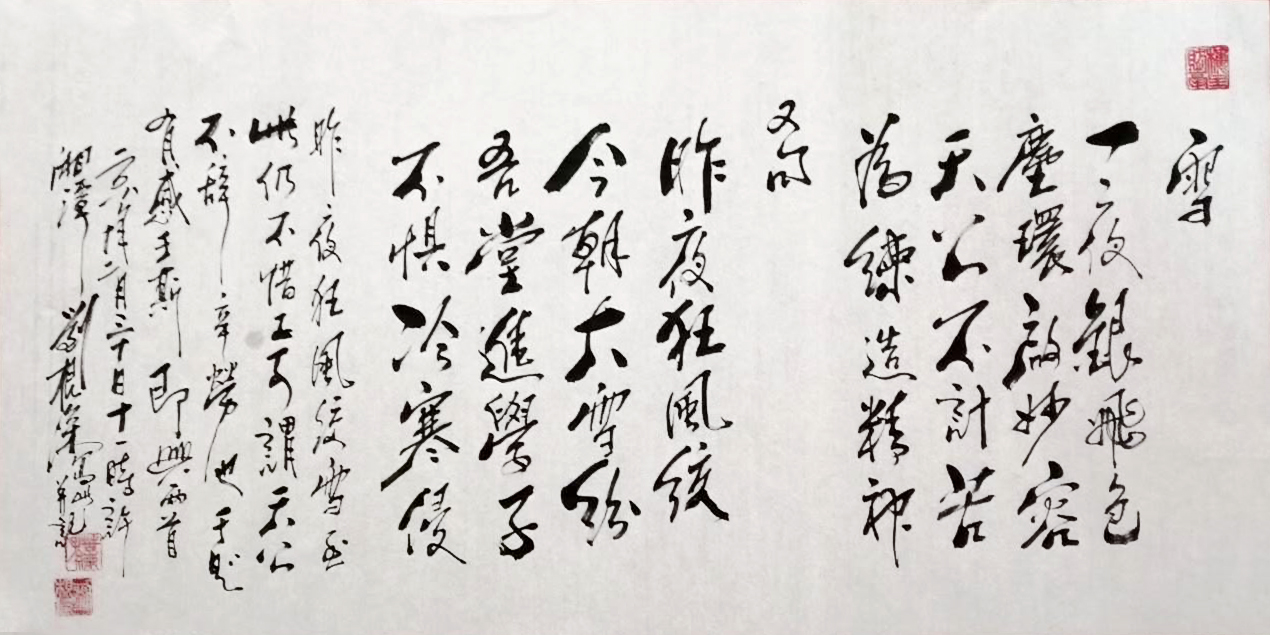 雪
一夜銀飛色
塵環啟妙容
天公不計苦
為練造精神
又
昨夜狂風緩
今朝大雪紛
吾堂進學子
不懼冷寒侵
昨夜狂風緩雪至
此仍不惜工可謂天公
不辭辛勞也于是
有感于斯即興兩首
年二月二十日十一時許
湘潭劉根深寫并記